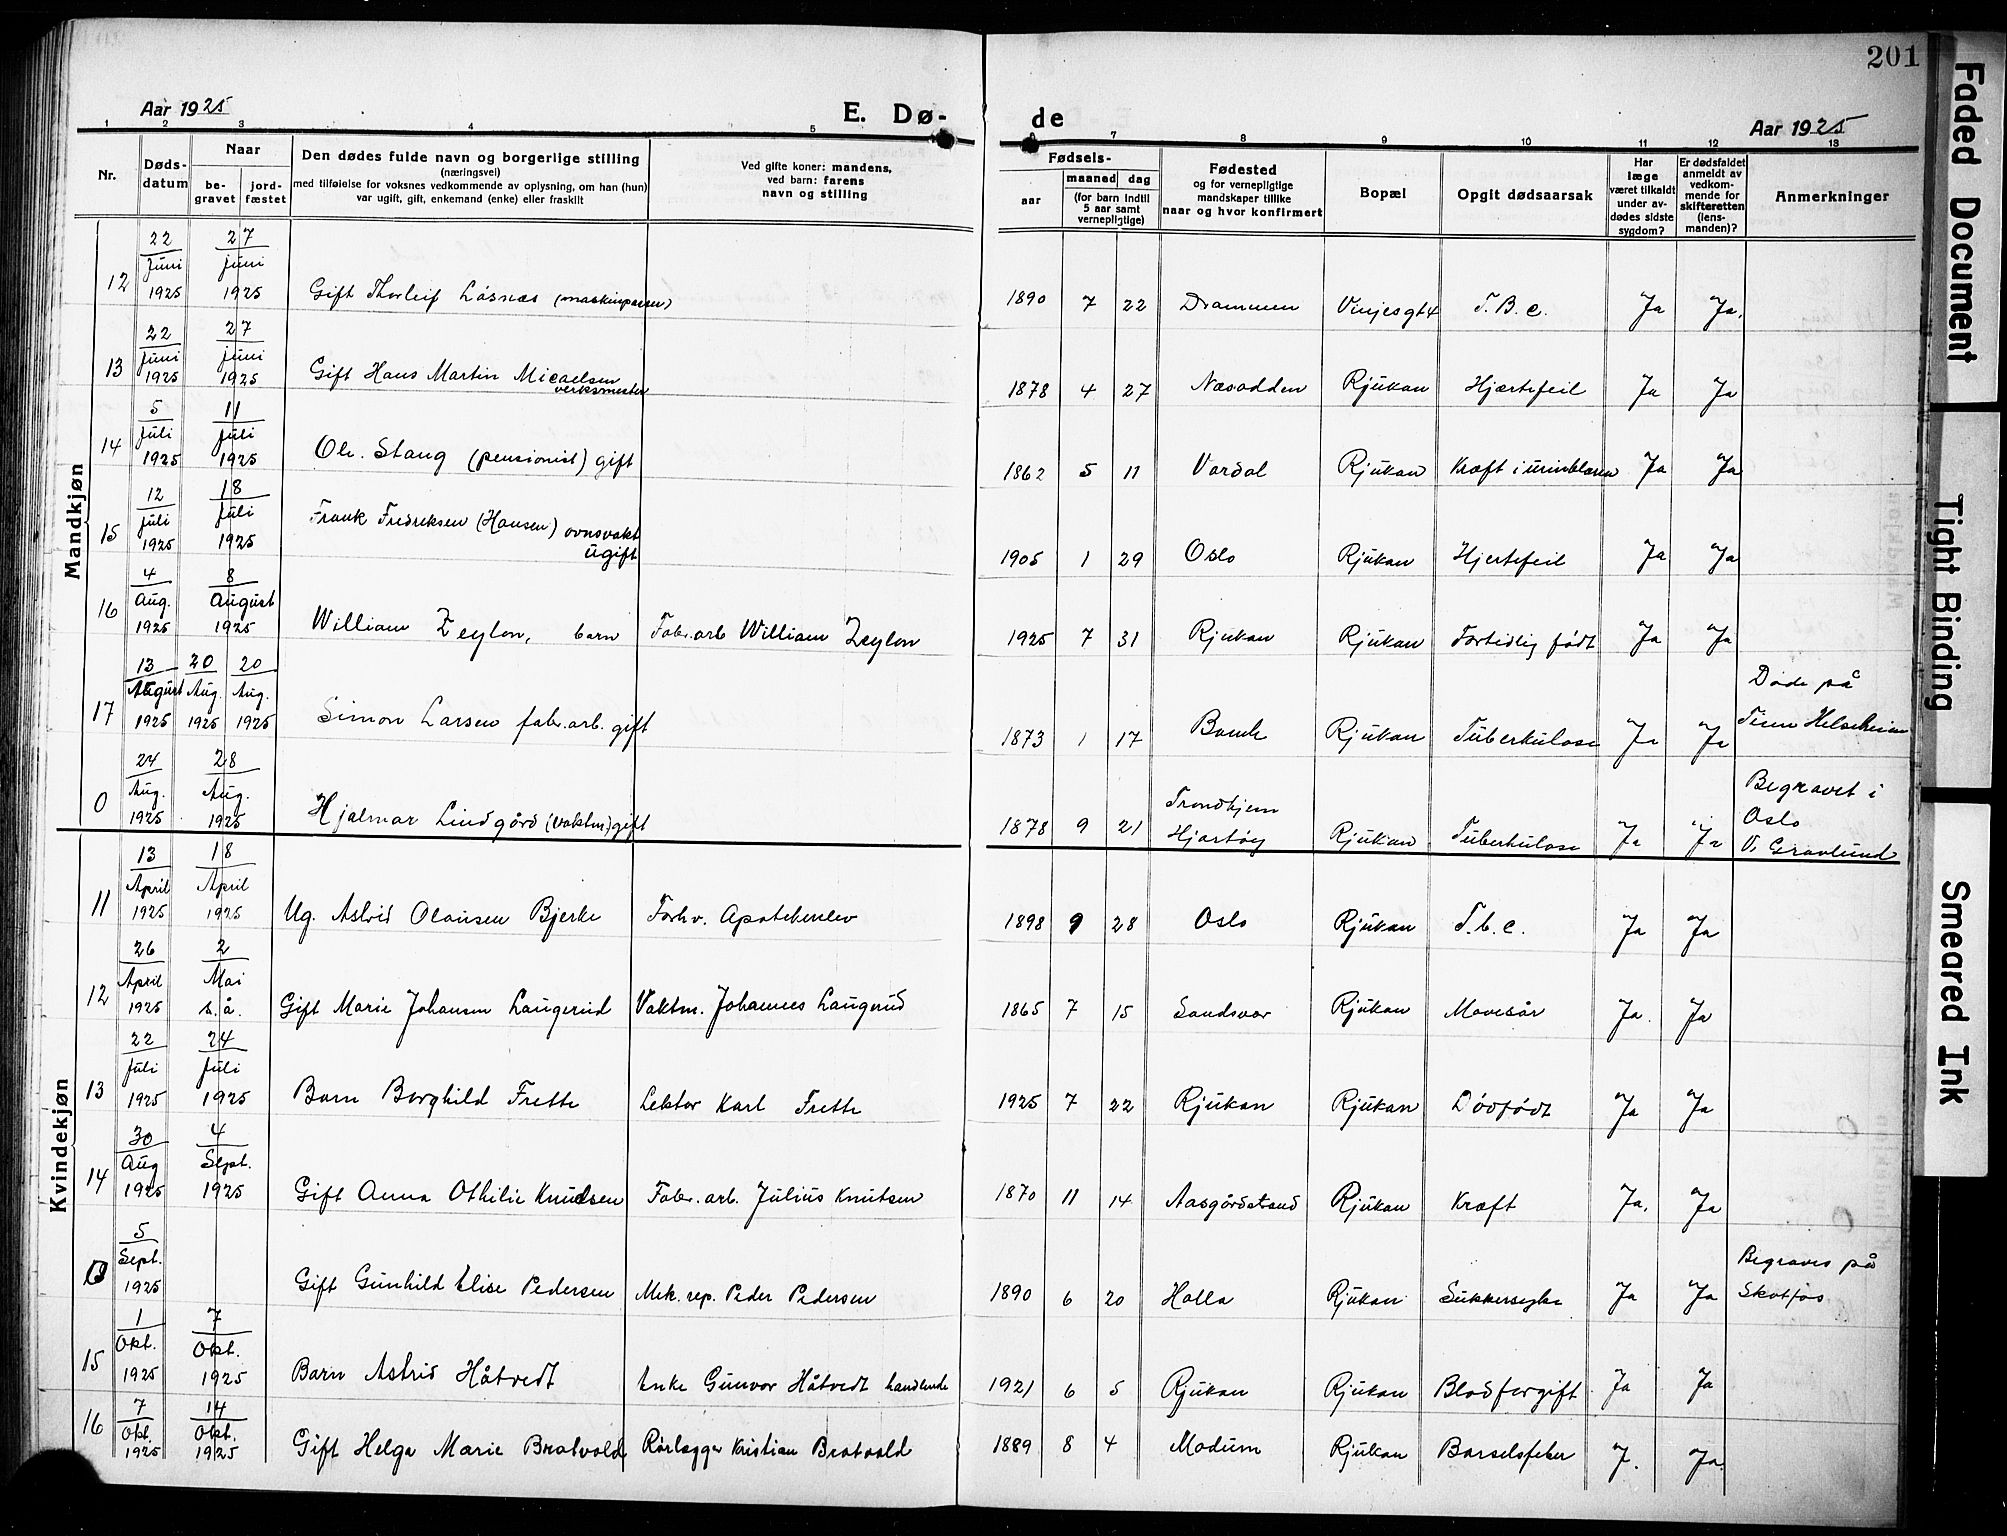 201
Aar 1925
E. Dø-
de
Aar 1925
1 2 3 4 5 6 7 8 9 10 11 12 13
Nr. Døds-datum Naar be-gravet jord-fæstet Den dødes fulde navn og borgerlige stilling (næringsvei) med tilføielse for voksnes vedkommende av oplysning, om han (hun) var ugift, gift, enkemand (enke) eller fraskilt Ved gifte koner: mandens, ved barn: farens navn og stilling Fødsels- aar maaned dag (for barn indtil 5 aar samt vernepligtige) Fødested og for vernepligtige mandskaper tillike naar og hvor konfirmert Bopæl Opgit dødsaarsak Har læge været tilkaldt under av-dødes sidste sygdom? Er dødsfaldet anmeldt av vedkom-mende for skifteretten (lens-manden)? Anmerkninger
Mandkjøn
12 22 Juni 1925 27 juni 1925 Gift Thorleif Løsnæs (maskinpasser) 1890 7 22 Drammen Vinjesgt 4 T.B.c. Ja Ja.
13 22 Juni 1925 27 juni 1925 Gift Hans Martin Micaelsen verksmester 1878 4 27 Næsodden Rjukan Hjærtefeil Ja Ja
14 5 Juli 1925 11 Juli 1925 Ole Stang (pensionist) gift 1862 5 11 Vardal Rjukan Kræft i urinblæren Ja Ja
15 12 Juli 1925 18 Juli 1925 Frank Fredreksen (Hansen) ovnsvakt ugift 1905 1 29 Oslo Rjukan Hjertefeil Ja Ja
16 4 Aug. 1925 8 August 1925 William Zeylon, barn Fabr.arb William Zeylon 1925 7 31 Rjukan Rjukan Fortidlig født Ja Ja
17 13 August 1925 20 Aug. 1925 20 Aug. 1925 Simon Larsen fabr.arb. gift 1873 1 17 Bamle Rjukan Tuberkulose Ja Ja Døde på Tinn Helseheim
0 24 Aug. 1925 28 Aug. 1925 Hjalmar Lindgård (vaktm) gift 1878 9 21 Trondhjem Hjartøy Rjukan Tuberkulose Ja Ja Begravet i Oslo V. Gravlund
Kvindekjøn
11 13 April 1925 18 April 1925 Ug. Astrid Olausen Bjerke Forhv. Apotekerelev 1898 9 28 Oslo Rjukan T.b.c. Ja Ja
12 26 April 1925 2 Mai s.å. Gift Marie Johansen Laugerud Vaktm. Johannes Laugerud 1865 7 15 Sandsvær Rjukan Mavesår Ja. Ja
13 22 Juli 1925 24 Juli 1925 Barn Borghild Frette Lektor Karl Frette 1925 7 22 Rjukan Rjukan Dødfødt Ja Ja
14 30 Aug 1925 4 Sept. 1925 Gift Anna Othilie Knudsen Fabr.arb. Julius Knutsen 1870 11 14 Aasgårdstrand Rjukan Kræft Ja. Ja
0 5 Sept. 1925 Gift Gunhild Elise Pedersen Mek. rep. Peder Pedersen 1890 6 20 Holla Rjukan Sukkersyke Ja Ja Begraves på Skotfos
15 1 Okt. 1925 7 Okt. 1925 Barn Astrid Håtvedt Enke Gunvor Håtvedt handlende 1921 6 5 Rjukan Rjukan Blodforgift. Ja Ja
16 7 Okt. 1925 14 Okt. 1925 Gift Helga Marie Bratvold Rørlægger Kristian Bratvold 1889 8 4 Modum Rjukan Barselsfeber J. Ja.
Faded Document
Tight Binding
Smeared Ink